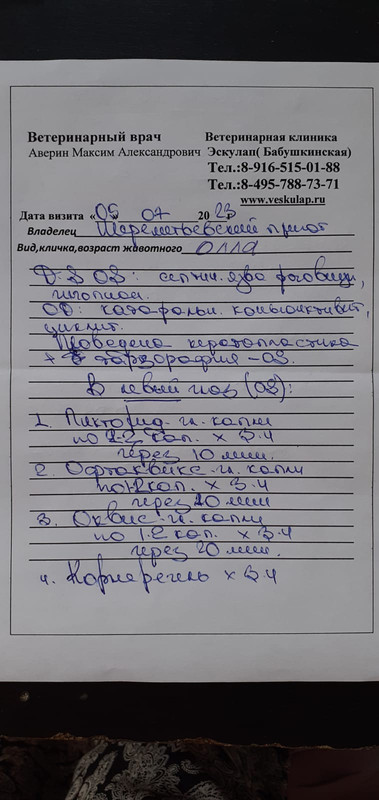 Ветеринарный врач Ветеринарная клиника
Аверин Максим Александрович Эскулап( Бабушкинская)
Тел.:8-916-515-01-88
Тел.:8-495-788-73-71
www.veskulap.ru
Дата визита «05» 04 2023
Владелец Шереметьевский приют
Вид,кличка,возраст животного Олла
D.S OS: септич. язва роговицы,
гипопион.
OD: катаральн. конъюнктивит,
Проведена кератопластика
+ тарзорафия - OS.
В левый глаз (OS):
1. Пиктофид - гл. капли
по 1-2 кап. х 3-4
через 10 мин.
2. Офтаквикс - гл. капли
по 1-2 кап. х 3-4
через 20 мин
3. Оквис - гл. капли
по 1-2 кап. х 3-4
через 20 мин.
4. Корнерегель х 3-4